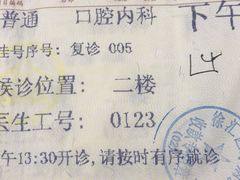 普通 口腔内科 下午
挂号序号: 复诊 005
候诊位置: 二楼
医生工号: 0123
午13:30开诊, 请按时有序就诊
徐汇